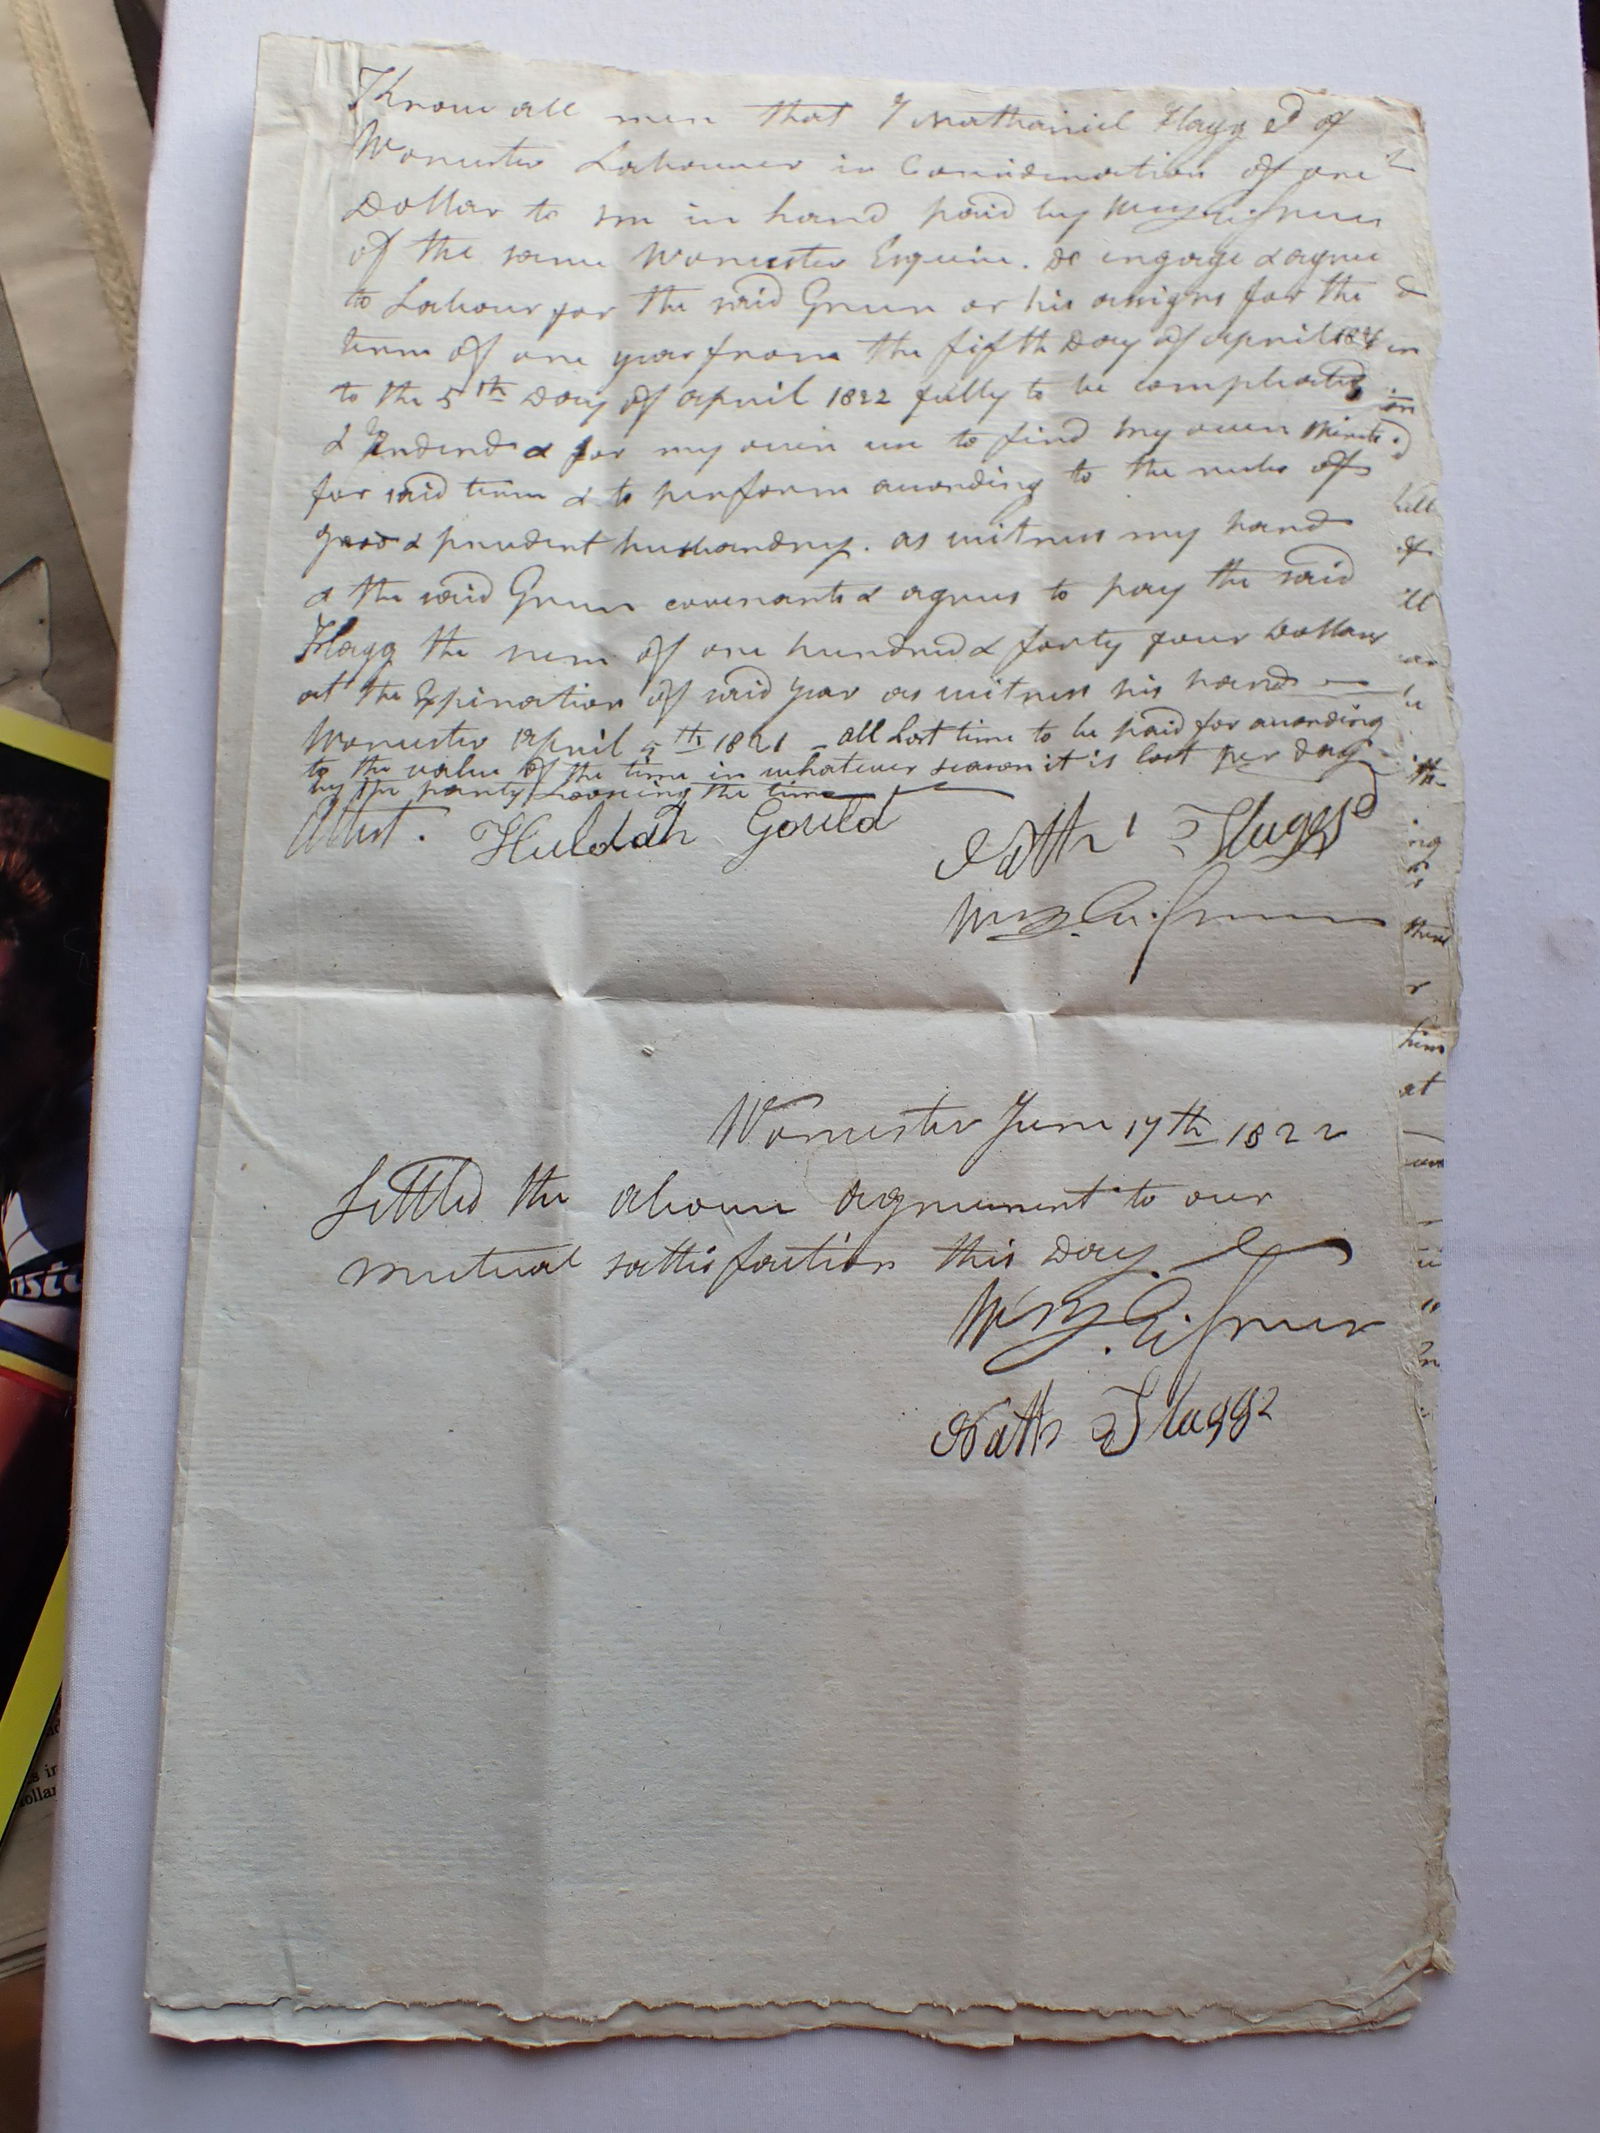 Know all men that I Nathaniel Flagg 2d of
Worcester Labourer in Consideration of one
Dollar to me in hand paid by Wm E. Green
of the same Worcester Esquire. do engage & agree
to Labour for the said Green or his assigns for the
term of one year from the fifth Day of April 1821
to the 5th Day of April 1822 fully to be compleated
& Ended & for my own use to find my own
for said term & to perform according to the rules of
good & prudent husbandry. as witness my hand
& the said Green covenants & agrees to pay the said
Flagg the sum of one hundred & forty four Dollars
at the Expiration of said year as witness his hand
Worcester April 5th 1821 – all Lost time to be paid for according
to the value of the time in whatever season it is lost per day
by the party Loosing the time
Attest. Huldah Gould Nathl Flagg 2d
Wm E. Green
Worcester June 17th 1822
Settled the above agreement to our
mutual sattisfaction this Day.
Wm E. Green
Nath Flagg 2
in
in
hill
of
ill
ith
ing
their
r
him
at
nsta
s in
ollar